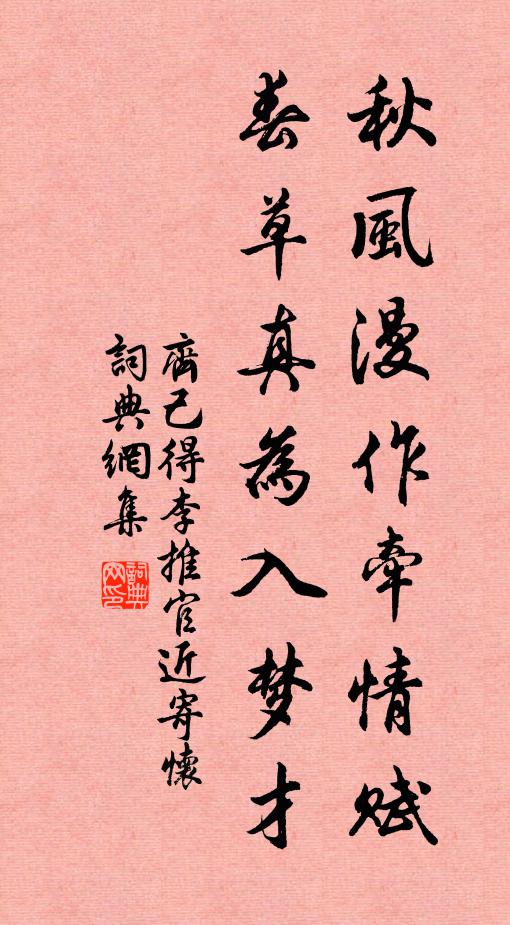 秋風漫作牽情賦
春草真為入梦才
齊己得李推官近寄懷
詞典網集
詞典
网印